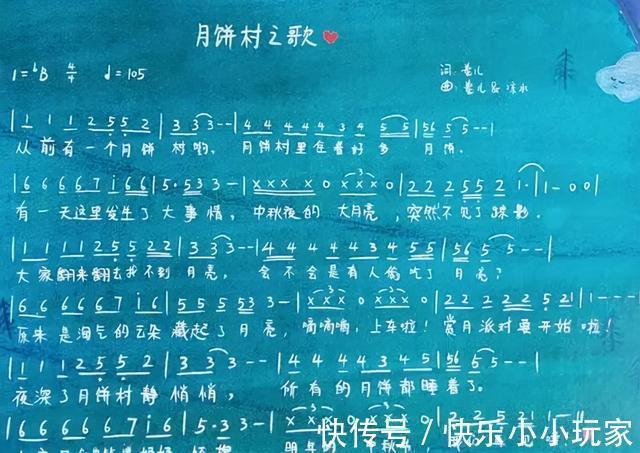 月饼村之歌
1=♭B 4/4 ♩=105
词:
曲: &
| 1 1 1 2 5 5 2 | 3 3 3 - - | 4 4 4 4 4 3 4 5 5 | 56 5 5 - - |
从前有一个月饼村哟, 月饼村里住着好多月饼。
| 6 6 6 6 6 7 i 6 6 | 5 · 5 3 3 - | x x x x 0 x x x 0 | 2 2 2 5 5 2 1 · | 1 - 0 0 |
有一天这里发生了大事情, 中秋夜的大月亮, 突然不见了踪影。
| 1 1 1 1 2 5 5 2 2 | 3 3 3 - - | 4 4 4 4 4 3 4 5 5 | 56 5 5 - - |
大家翻来翻去找不到月亮, 会不会是有人偷吃了月亮?
| 6 6 6 6 6 7 i 6 | 5 5 5 5 3 3 - | x x x 0 x x x 0 | 2 2 2 2 2 5 2 1 | 1 - - -
原来是淘气的云朵藏起了月亮, 嘀嘀嘀, 上车啦! 赏月派对要开始啦!
| 1 1 1 2 5 5 2 | 3 3 3 - - | 4 4 4 4 3 4 5 | 56 5 5 - - |
夜深了月饼村静悄悄, 所有的月饼都睡着了。
| 6 6 6 6 6 7 i 6 | 5 · 3 3 - |
明年的中秋节,
快传号 / 快乐小小玩家